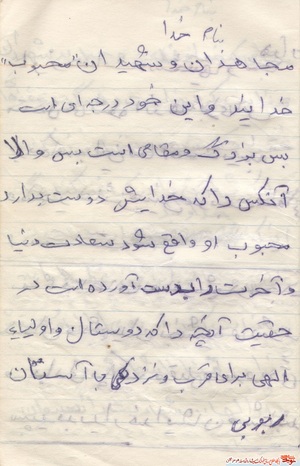 بنام خدا
مجاهدان و شهیدان "محبوب"
خدایند و این خود درجه‌ای است
بس بزرگ و مقامی است بس والا
آنکس را که خدایش دوست بدارد
محبوب او واقع شود سعادت دنیا
و آخرت را بدست آورده است در
حقیقت آنچه را که دوستان و اولیاء
الهی برای قرب و نزدیکی با آستان
ربوبی